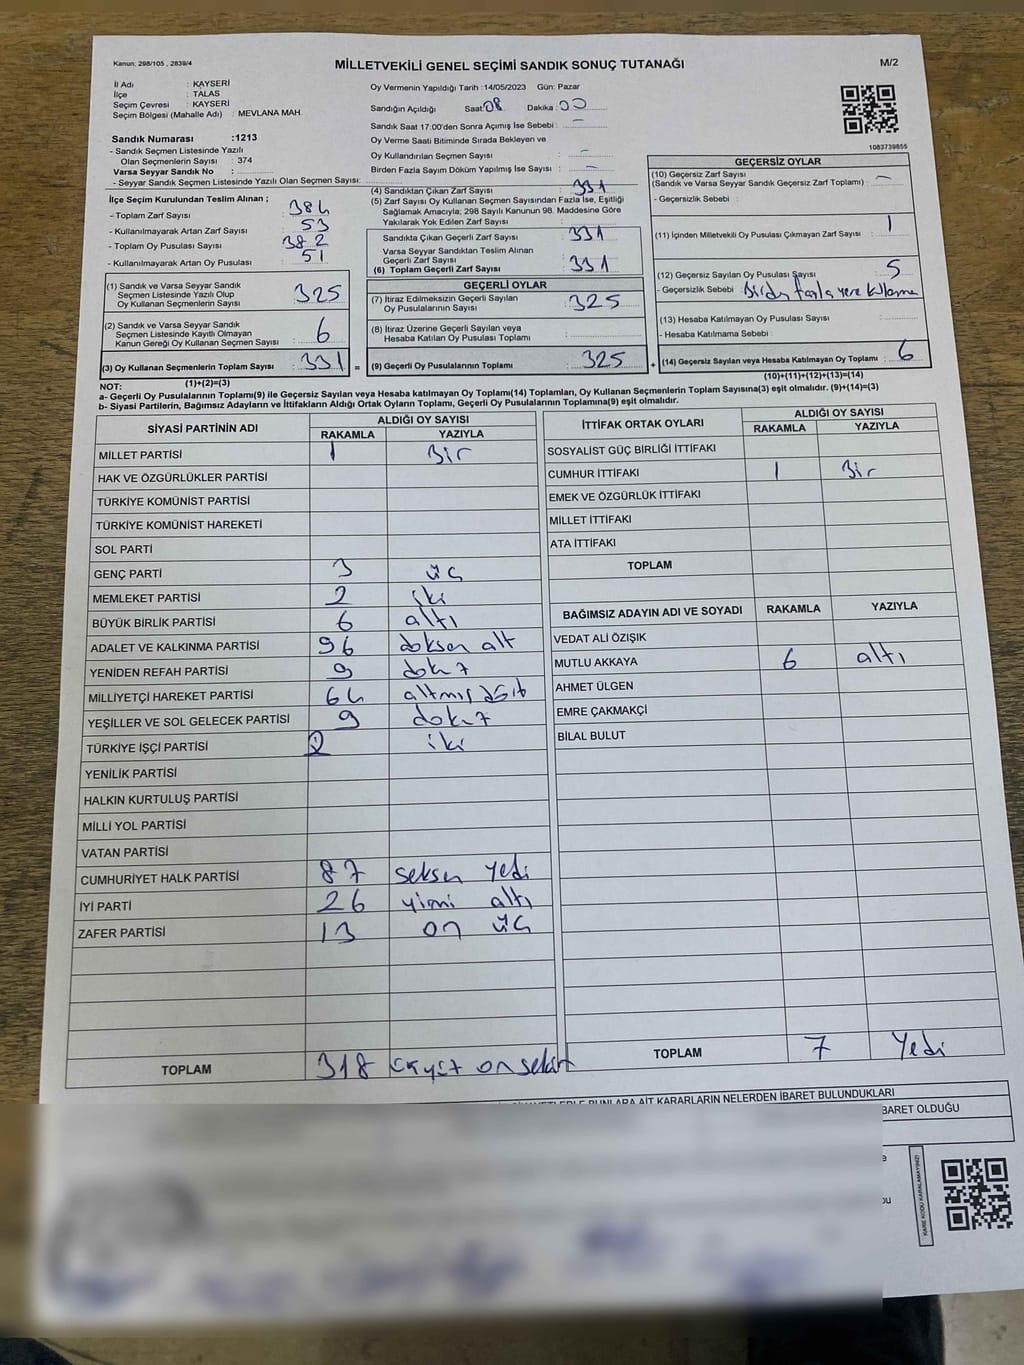 Kanun: 298/105 , 2839/4
MİLLETVEKİLİ GENEL SEÇİMİ SANDIK SONUÇ TUTANAĞI
M/2
İl Adı : KAYSERİ
İlçe : TALAS
Seçim Çevresi : KAYSERİ
Seçim Bölgesi (Mahalle Adı) : MEVLANA MAH.
Sandık Numarası :1213
- Sandık Seçmen Listesinde Yazılı
Olan Seçmenlerin Sayısı : 374
Varsa Seyyar Sandık No :
- Seyyar Sandık Seçmen Listesinde Yazılı Olan Seçmen Sayısı:
Oy Vermenin Yapıldığı Tarih :14/05/2023 Gün: Pazar
Sandığın Açıldığı Saat:08 Dakika:00
Sandık Saat 17:00'den Sonra Açımış İse Sebebi : -
Oy Verme Saati Bitiminde Sırada Bekleyen ve
Oy Kullandırılan Seçmen Sayısı : -
Birden Fazla Sayım Döküm Yapılmış İse Sayısı : -
1083739855
İlçe Seçim Kurulundan Teslim Alınan ;
- Toplam Zarf Sayısı : 384
- Kullanılmayarak Artan Zarf Sayısı : 53
- Toplam Oy Pusulası Sayısı : 382
- Kullanılmayarak Artan Oy Pusulası : 51
(1) Sandık ve Varsa Seyyar Sandık
Seçmen Listesinde Yazılı Olup
Oy Kullanan Seçmenlerin Sayısı : 325
(2) Sandık ve Varsa Seyyar Sandık
Seçmen Listesinde Kayıtlı Olmayan
Kanun Gereği Oy Kullanan Seçmen Sayısı : 6
(3) Oy Kullanan Seçmenlerin Toplam Sayısı : 331
(4) Sandıktan Çıkan Zarf Sayısı : 331
(5) Zarf Sayısı Oy Kullanan Seçmen Sayısından Fazla İse, Eşitliği
Sağlamak Amacıyla; 298 Sayılı Kanunun 98. Maddesine Göre
Yakılarak Yok Edilen Zarf Sayısı :
Sandıkta Çıkan Geçerli Zarf Sayısı : 331
Varsa Seyyar Sandıktan Teslim Alınan
Geçerli Zarf Sayısı :
(6) Toplam Geçerli Zarf Sayısı : 331
GEÇERLİ OYLAR
(7) İtiraz Edilmeksizin Geçerli Sayılan
Oy Pusulalarının Sayısı : 325
(8) İtiraz Üzerine Geçerli Sayılan veya
Hesaba Katılan Oy Pusulası Toplamı :
= (9) Geçerli Oy Pusulalarının Toplamı : 325 +
GEÇERSİZ OYLAR
(10) Geçersiz Zarf Sayısı
(Sandık ve Varsa Seyyar Sandık Geçersiz Zarf Toplamı) : -
- Geçersizlik Sebebi :
(11) İçinden Milletvekili Oy Pusulası Çıkmayan Zarf Sayısı : 1
(12) Geçersiz Sayılan Oy Pusulası Sayısı : 5
- Geçersizlik Sebebi : Birden fazla yere kullanma
(13) Hesaba Katılmayan Oy Pusulası Sayısı :
- Hesaba Katılmama Sebebi :
(14) Geçersiz Sayılan veya Hesaba Katılmayan Oy Toplamı : 6
(1)+(2)=(3)
(10)+(11)+(12)+(13)=(14)
NOT:
a- Geçerli Oy Pusulalarının Toplamı(9) ile Geçersiz Sayılan veya Hesaba katılmayan Oy Toplamı(14) Toplamları, Oy Kullanan Seçmenlerin Toplam Sayısına(3) eşit olmalıdır. (9)+(14)=(3)
b- Siyasi Partilerin, Bağımsız Adayların ve İttifakların Aldığı Ortak Oyların Toplamı, Geçerli Oy Pusulalarının Toplamına(9) eşit olmalıdır.
SİYASİ PARTİNİN ADI
ALDIĞI OY SAYISI
RAKAMLA YAZIYLA
MİLLET PARTİSİ 1 Bir
HAK VE ÖZGÜRLÜKLER PARTİSİ
TÜRKİYE KOMÜNİST PARTİSİ
TÜRKİYE KOMÜNİST HAREKETİ
SOL PARTİ
GENÇ PARTİ 3 üç
MEMLEKET PARTİSİ 2 iki
BÜYÜK BİRLİK PARTİSİ 6 altı
ADALET VE KALKINMA PARTİSİ 96 doksan alt
YENİDEN REFAH PARTİSİ 9 dokuz
MİLLİYETÇİ HAREKET PARTİSİ 64 altmış dört
YEŞİLLER VE SOL GELECEK PARTİSİ 9 dokuz
TÜRKİYE İŞÇİ PARTİSİ 2 iki
YENİLİK PARTİSİ
HALKIN KURTULUŞ PARTİSİ
MİLLİ YOL PARTİSİ
VATAN PARTİSİ
CUMHURİYET HALK PARTİSİ 87 seksen yedi
İYİ PARTİ 26 yirmi altı
ZAFER PARTİSİ 13 on üç
TOPLAM 318 üçyüz on sekiz
İTTİFAK ORTAK OYLARI
ALDIĞI OY SAYISI
RAKAMLA YAZIYLA
SOSYALİST GÜÇ BİRLİĞİ İTTİFAKI
CUMHUR İTTİFAKI 1 Bir
EMEK VE ÖZGÜRLÜK İTTİFAKI
MİLLET İTTİFAKI
ATA İTTİFAKI
TOPLAM
BAĞIMSIZ ADAYIN ADI VE SOYADI RAKAMLA YAZIYLA
VEDAT ALİ ÖZIŞIK
MUTLU AKKAYA 6 altı
AHMET ÜLGEN
EMRE ÇAKMAKÇİ
BİLAL BULUT
TOPLAM 7 Yedi
BUNLARA AİT KARARLARIN NELERDEN İBARET BULUNDUKLARI
BARET OLDUĞU
KARE KODU KARALAMAYINIZ!